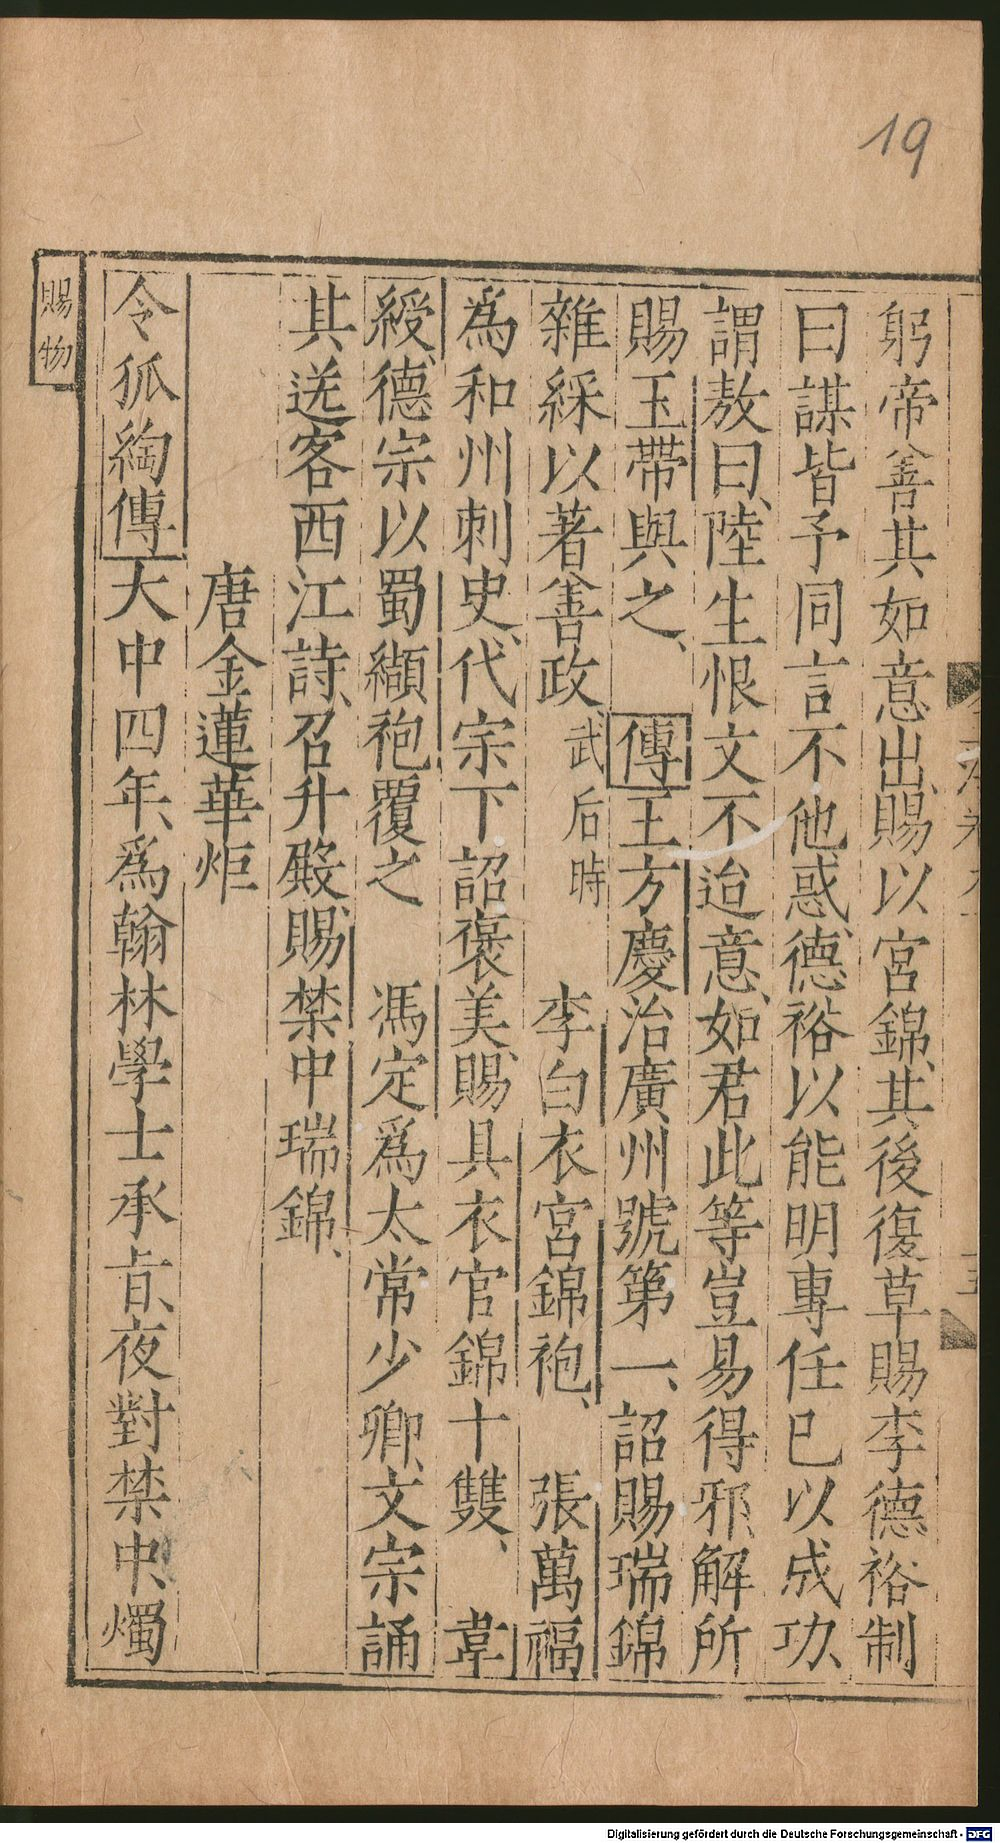 19
躬帝善其如意出、賜以宮錦、其後復草賜李德裕制
曰謀皆予同言不他惑、德裕以能明專任已以成功、
謂敖曰、陸生恨文不迨意、如君此等豈易得邪、解所
賜玉帶與之、 傳王方慶治廣州號第一、詔賜瑞錦
雜綵以著善政 武后時 李白衣宮錦袍、 張萬福
為和州刺史、代宗下詔褒美、賜具衣官錦十雙、 韋
綬、德宗以蜀纈袍覆之 馮定爲太常少卿、文宗誦
其送客西江詩、召升殿、賜禁中瑞錦、
唐金蓮華炬
令狐綯傳大中四年、爲翰林學士承旨、夜對禁中、燭
賜物
Digitalisierung gefördert durch die Deutsche Forschungsgemeinschaft - DFG